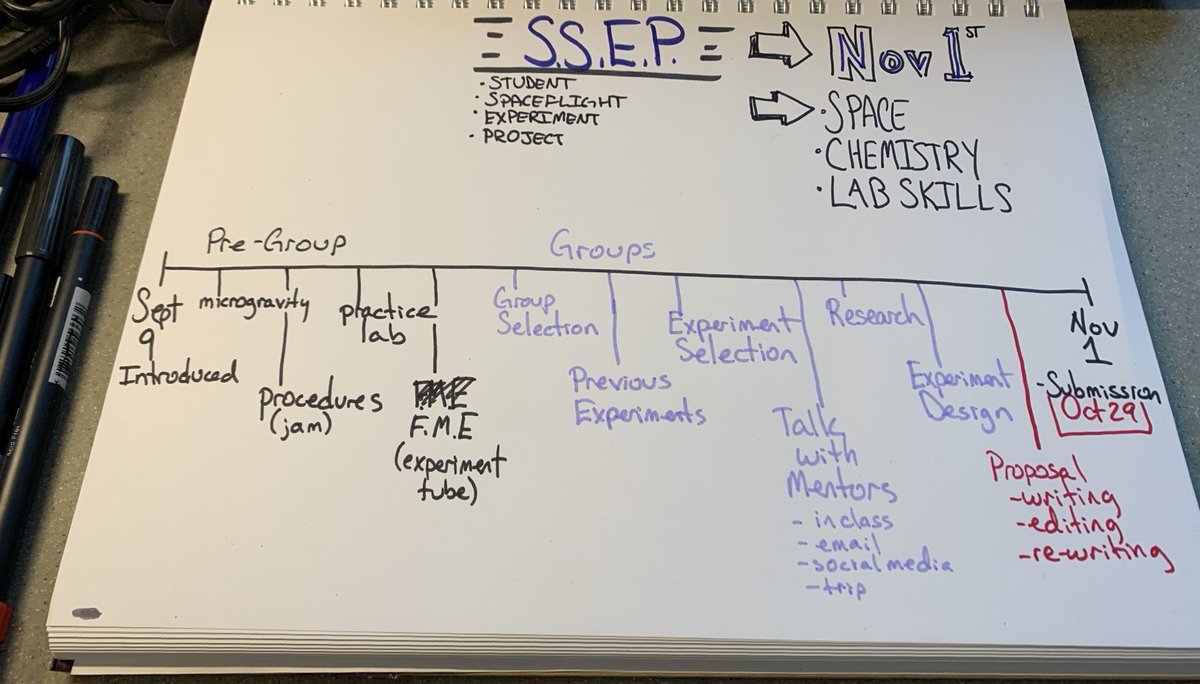 S.S.E.P.
· STUDENT
· SPACEFLIGHT
· EXPERIMENT
· PROJECT
Nov 1ST
· SPACE
· CHEMISTRY
· LAB SKILLS
Pre-Group
Groups
Sept
9
Introduced
microgravity
procedures
(jam)
practice
lab
F.M.E
(experiment
tube)
Group
Selection
Previous
Experiments
Experiment
Selection
Talk
with
Mentors
- in class
- email
- social media
- trip
Research
Experiment
Design
Proposal
- writing
- editing
- re-writing
Nov
1
- Submission
Oct 29